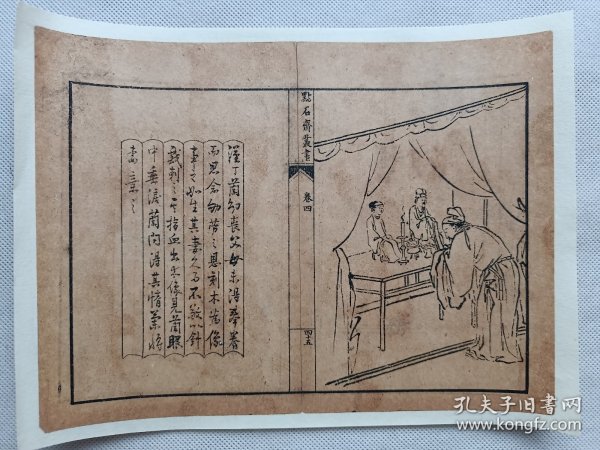 漢丁蘭幼喪父母未得奉養
而思念劬勞之恩刻木為像
事之如生其妻久而不敬以針
戲刺之其指血出木像見蘭眼
中垂淚蘭問得其情遂將
妻棄之
點石齋叢書
卷四
四五
孔夫子旧书网
www.kongfz.com